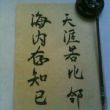 天涯若比鄰
海内存知己